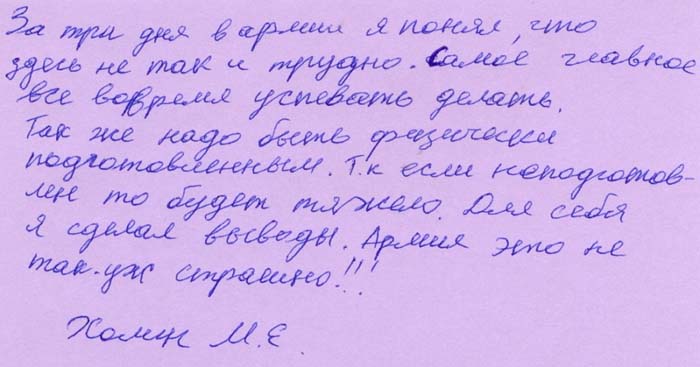 За три дня в армии я понял, что
здесь не так и трудно. Самое главное
все вовремя успевать делать.
Так же надо быть физически
подготовленным. Т.к если неподготов-
лен то будет тяжело. Для себя
я сделал выводы. Армия это не
так уж страшно!!!
М.Е.